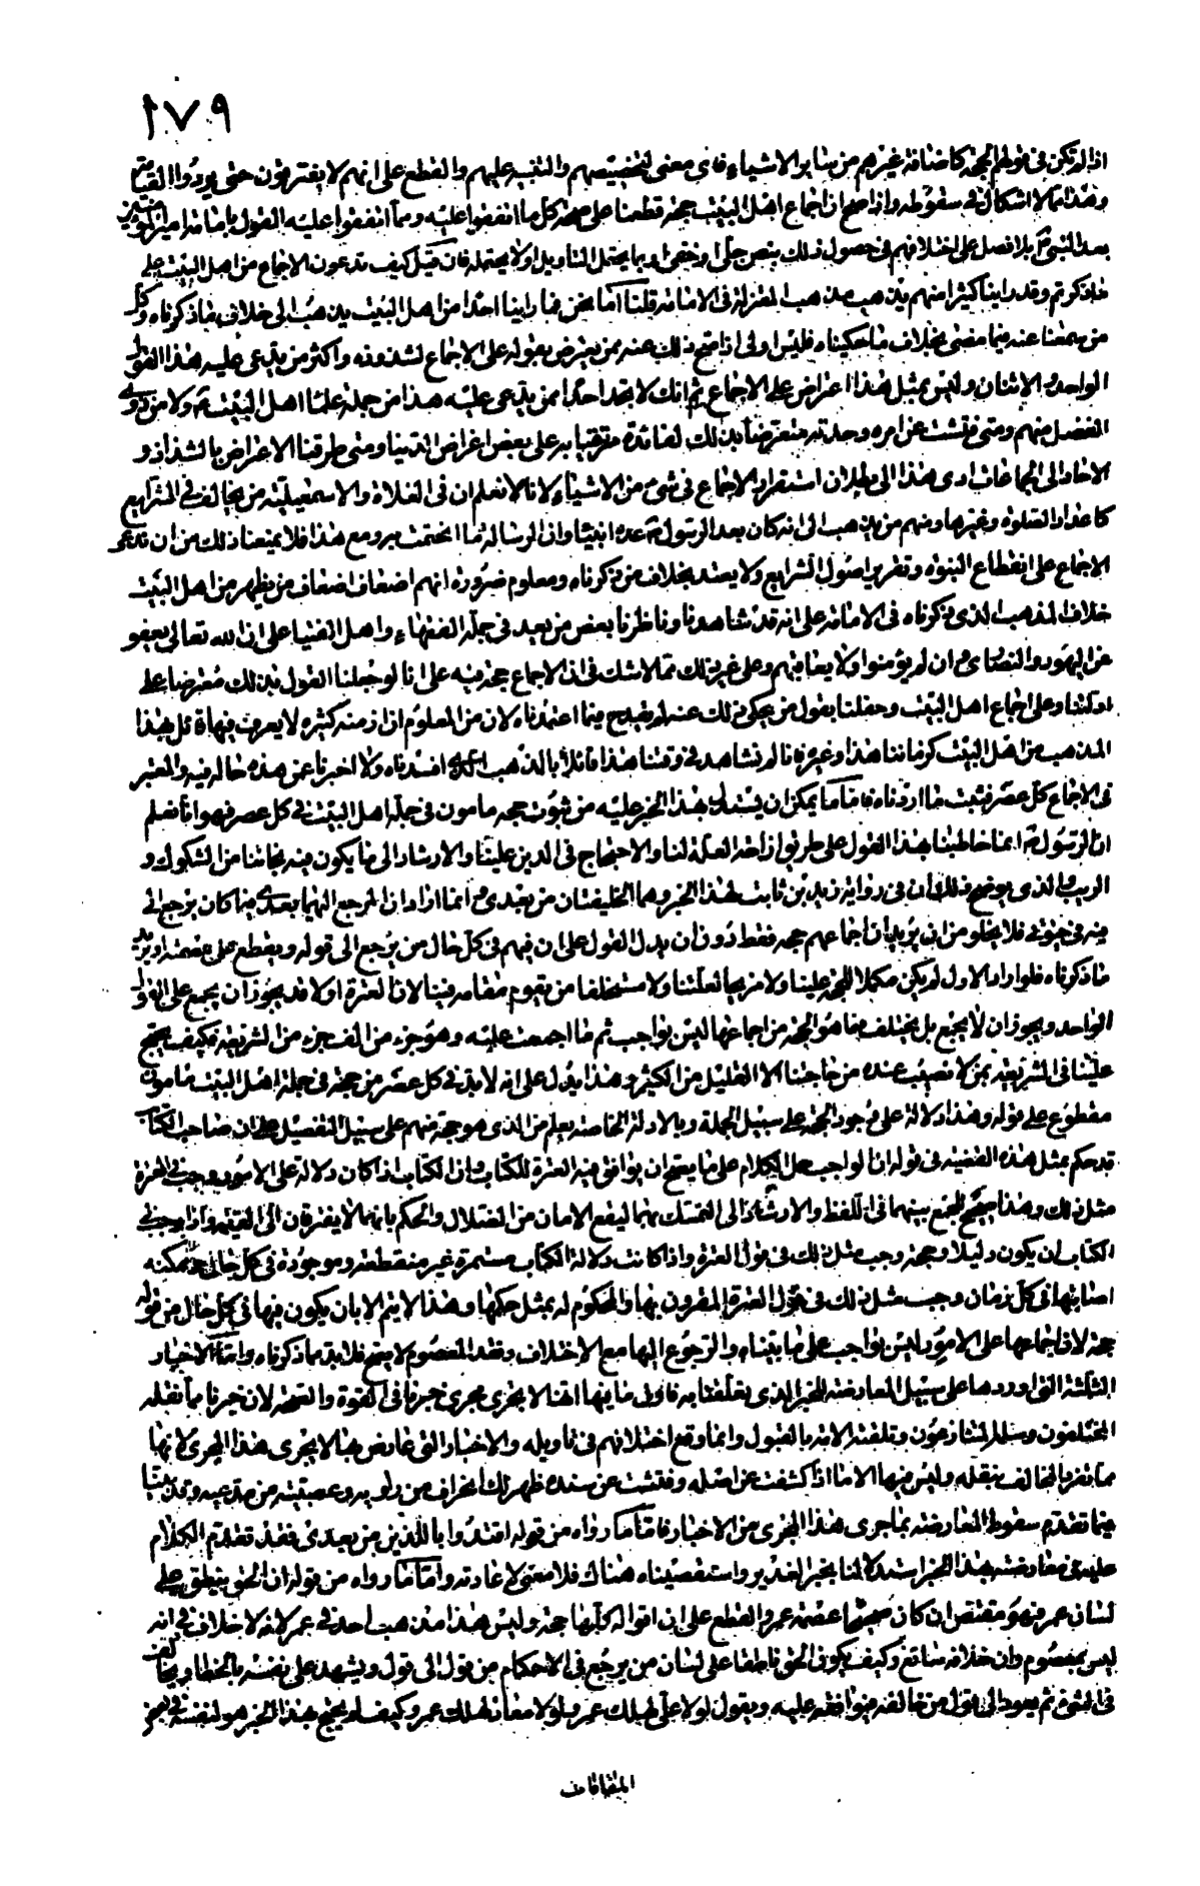 ١٧٩
اذا لم تكن في قولهم الحجة كاضافة غيرهم من ساير الاشياء فاى معنى لتخصيصهم والتنبيه عليهم والقطع على انهم لا يفترقون حتى يردوا القيامة
وهذا مما لا اشكال في سقوطه واذا صح ان اجماع اهل البيت حجة قطعنا على صحة كل ما اتفقوا عليه ومما اتفقوا عليه القول بامامة امير المؤمنين
بعد النبي ص بلا فصل على اختلافهم في حصول ذلك بنص جلى او خفى او بما يحتمل التاويل او لا يحتمله فان قيل كيف تدعون الاجماع من اهل البيت على
ما ذكرتم وقد راينا كثيرا منهم يذهب مذهب المعتزلة في الامامة قلنا اما نحن فما راينا احدا من اهل البيت يذهب الى خلاف ما ذكرناه وكل
من سمعنا عنه فيما مضى بخلاف ما حكيناه فليس اولى اذا صح ذلك عنه ممن يعترض بقوله على الاجماع لشذوذه واكثر من يدعى عليه هذا القول
الواحد والاثنان وليس بمثل هذا اعتراض على الاجماع ثم انك لا تجد احدا ممن يدعى عليه هذا من جملة علماء اهل البيت ع ولا من ذوى
الفضل منهم ومتى فتشت عن امره وجدته متعرضا بذلك لفائدة مترقبا به على بعض اغراض الدنيا ومتى طرقنا الاعتراض بالشذاذ و
الاحاد الى الجماعات ادى هذا الى بطلان استقرار الاجماع في شىء من الاشياء لانا لا نعلم ان في الغلاة والاسمعيلية من يخالف في الشرايع
كاعداد الصلوة وغيرها ومنهم من يذهب الى انه كان بعد الرسول ص عدة انبياء وان الرسالة ما اختتمت به ومع هذا فلا يمنعنا ذلك من ان ندعى
الاجماع على انقطاع النبوة وتقرير اصول الشرايع ولا يعتد بخلاف من ذكرناه ومعلوم ضرورة انهم اضعاف اضعاف من يظهر من اهل البيت
خلاف المذهب الذى ذكرناه في الامامة على انه قد شاهدنا وناظرنا بعض من يعد في جملة الفقهاء واهل الفتيا على ان الله تعالى يعفو
عن اليهود والنصارى وان لم يؤمنوا ولا يعاقبهم وعلى غير ذلك مما لا شك في ان الاجماع حجة فيه على انا لو جعلنا القول بذلك معترضا على
ادلتنا وعلى اجماع اهل البيت وحفلنا بقول من يحكى ذلك عنه لم يقدح فيما اعتمدناه لان من المعلوم ان ازمنة كثيرة لا يعرف فيها قائل بهذا
المذهب من اهل البيت كزماننا هذا وغيره فانا لم نشاهد في وقتنا هذا قائلا بالمذهب الذى افسدناه ولا اخبرنا عمن هذه حاله فيه والمعتبر
في الاجماع كل عصر فثبت ما اردناه فاما ما يمكن ان يستدل بهذا الخبر عليه من ثبوت حجة مامون في جملة اهل البيت في كل عصر فهو انا نعلم
ان الرسول ص انما خاطبنا بهذا القول على طريق ازاحة العلة لنا والاحتجاج في الدين علينا والارشاد الى ما يكون فيه نجاتنا من الشكوك و
الريب والذى يوضح ذلك ان في رواية زيد بن ثابت لهذا الخبر وهما الخليفتان من بعدى وانما اراد ان المرجع اليهما بعدى فيما كان يرجع الى
فيه في حيوتى فلا يخلو من ان يريد ان اجماعهم حجة فقط دون ان يدل القول على ان فيهم في كل حال من يرجع الى قوله ويقطع على عصمته او يريد
ما ذكرناه فلو اراد الاول لم يكن مكملا للحجة علينا ولا مزيحا لعلتنا ولا مستخلفا من يقوم مقامه فينا لان العترة اولا قد يجوز ان يجمع على القول
الواحد ويجوز ان لا يجمع بل يختلف فما هو الحجة من اجماعها ليس بواجب ثم ما اجمعت عليه هو جزء من الف جزء من الشريعة فكيف يحتج
علينا في الشريعة بمن لا نصيب عنده من حاجتنا الا القليل من الكثير وهذا يدل على انه لا بد في كل عصر من حجة في جملة اهل البيت مامون
مقطوع على قوله وهذا دلالة على وجود الحجة على سبيل الجملة وبالادلة الخاصة يعلم من الذى هو حجة منهم على سبيل التفصيل على ان صاحب الكتاب
قد حكم بمثل هذه القضية في قوله ان الواجب حمل الكلام على ما يصح ان يوافق فيه العترة للكتاب وان الكتاب اذا كان دلالة على الامور وجب في العترة
مثل ذلك وهذا صحيح لجمع بينهما في اللفظ والارشاد الى التمسك بهما ليقع الامان من الضلال والحكم بانهما لا يفترقان الى القيمة واذا وجب في
الكتاب ان يكون دليلا وحجة وجب مثل ذلك في قول العترة واذا كانت دلالة الكتاب مستمرة غير منقطعة وموجودة في كل حال وممكنة
اصابتها في كل زمان وجب مثل ذلك في قول العترة المقرون بها والمحكوم له بمثل حكمها وهذا لا يتم الا بان يكون فيها في كل حال من قوله
حجة لان اجماعها على الامور ليس بواجب على ما بيناه والرجوع اليها مع الاختلاف وفقد المعصوم لا يصح فلا بد مما ذكرناه واما الاخبار
الثلثة التى اوردها على سبيل المعارضة للخبر الذى تعلقنا به فاول ما فيها انها لا تجرى مجرى خبرنا في القوة والصحة لان خبرنا مما نقله
المختلفون وسلمه المتنازعون وتلقته الامة بالقبول وانما وقع اختلافهم في تاويله والاخبار التى عارض بها لا يجرى هذا المجرى لانها
مما تفرد المخالف بنقله وليس فيها الا ما اذا كشفت عن اصله وفتشت عن سنده ظهر لك انحراف من راويه وعصبية من مدعيه وقد بينا
فيما تقدم سقوط المعارضة بما جرى هذا المجرى من الاخبار فاما ما رواه من قوله اقتدوا باللذين من بعدى فقد تقدم الكلام
عليه في معارضته بهذا الخبر استدلالنا بخبر الغدير واستقصيناه هناك فلا معنى لاعادته واما ما رواه من قوله ان الحق ينطق على
لسان عمر فهو مقتض ان كان صحيحا عصمة عمر والقطع على ان اقواله كلها حجة وليس هذا مذهب احد في عمر لانه لا خلاف في انه
ليس بمعصوم وان خلافه سائغ وكيف يكون الحق ناطقا على لسان من يرجع في الاحكام من قول الى قول ويشهد على نفسه بالخطا ويخالف
في الشىء ثم يعود الى قول من خالفه فيوافقه عليه ويقول لولا على لهلك عمر ولولا معاذ لهلك عمر وكيف لم يحتج بهذا الخبر هو لنفسه في بعض
المقامات